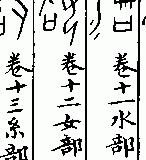 卷十一水部
卷十二女部
卷十三糸部